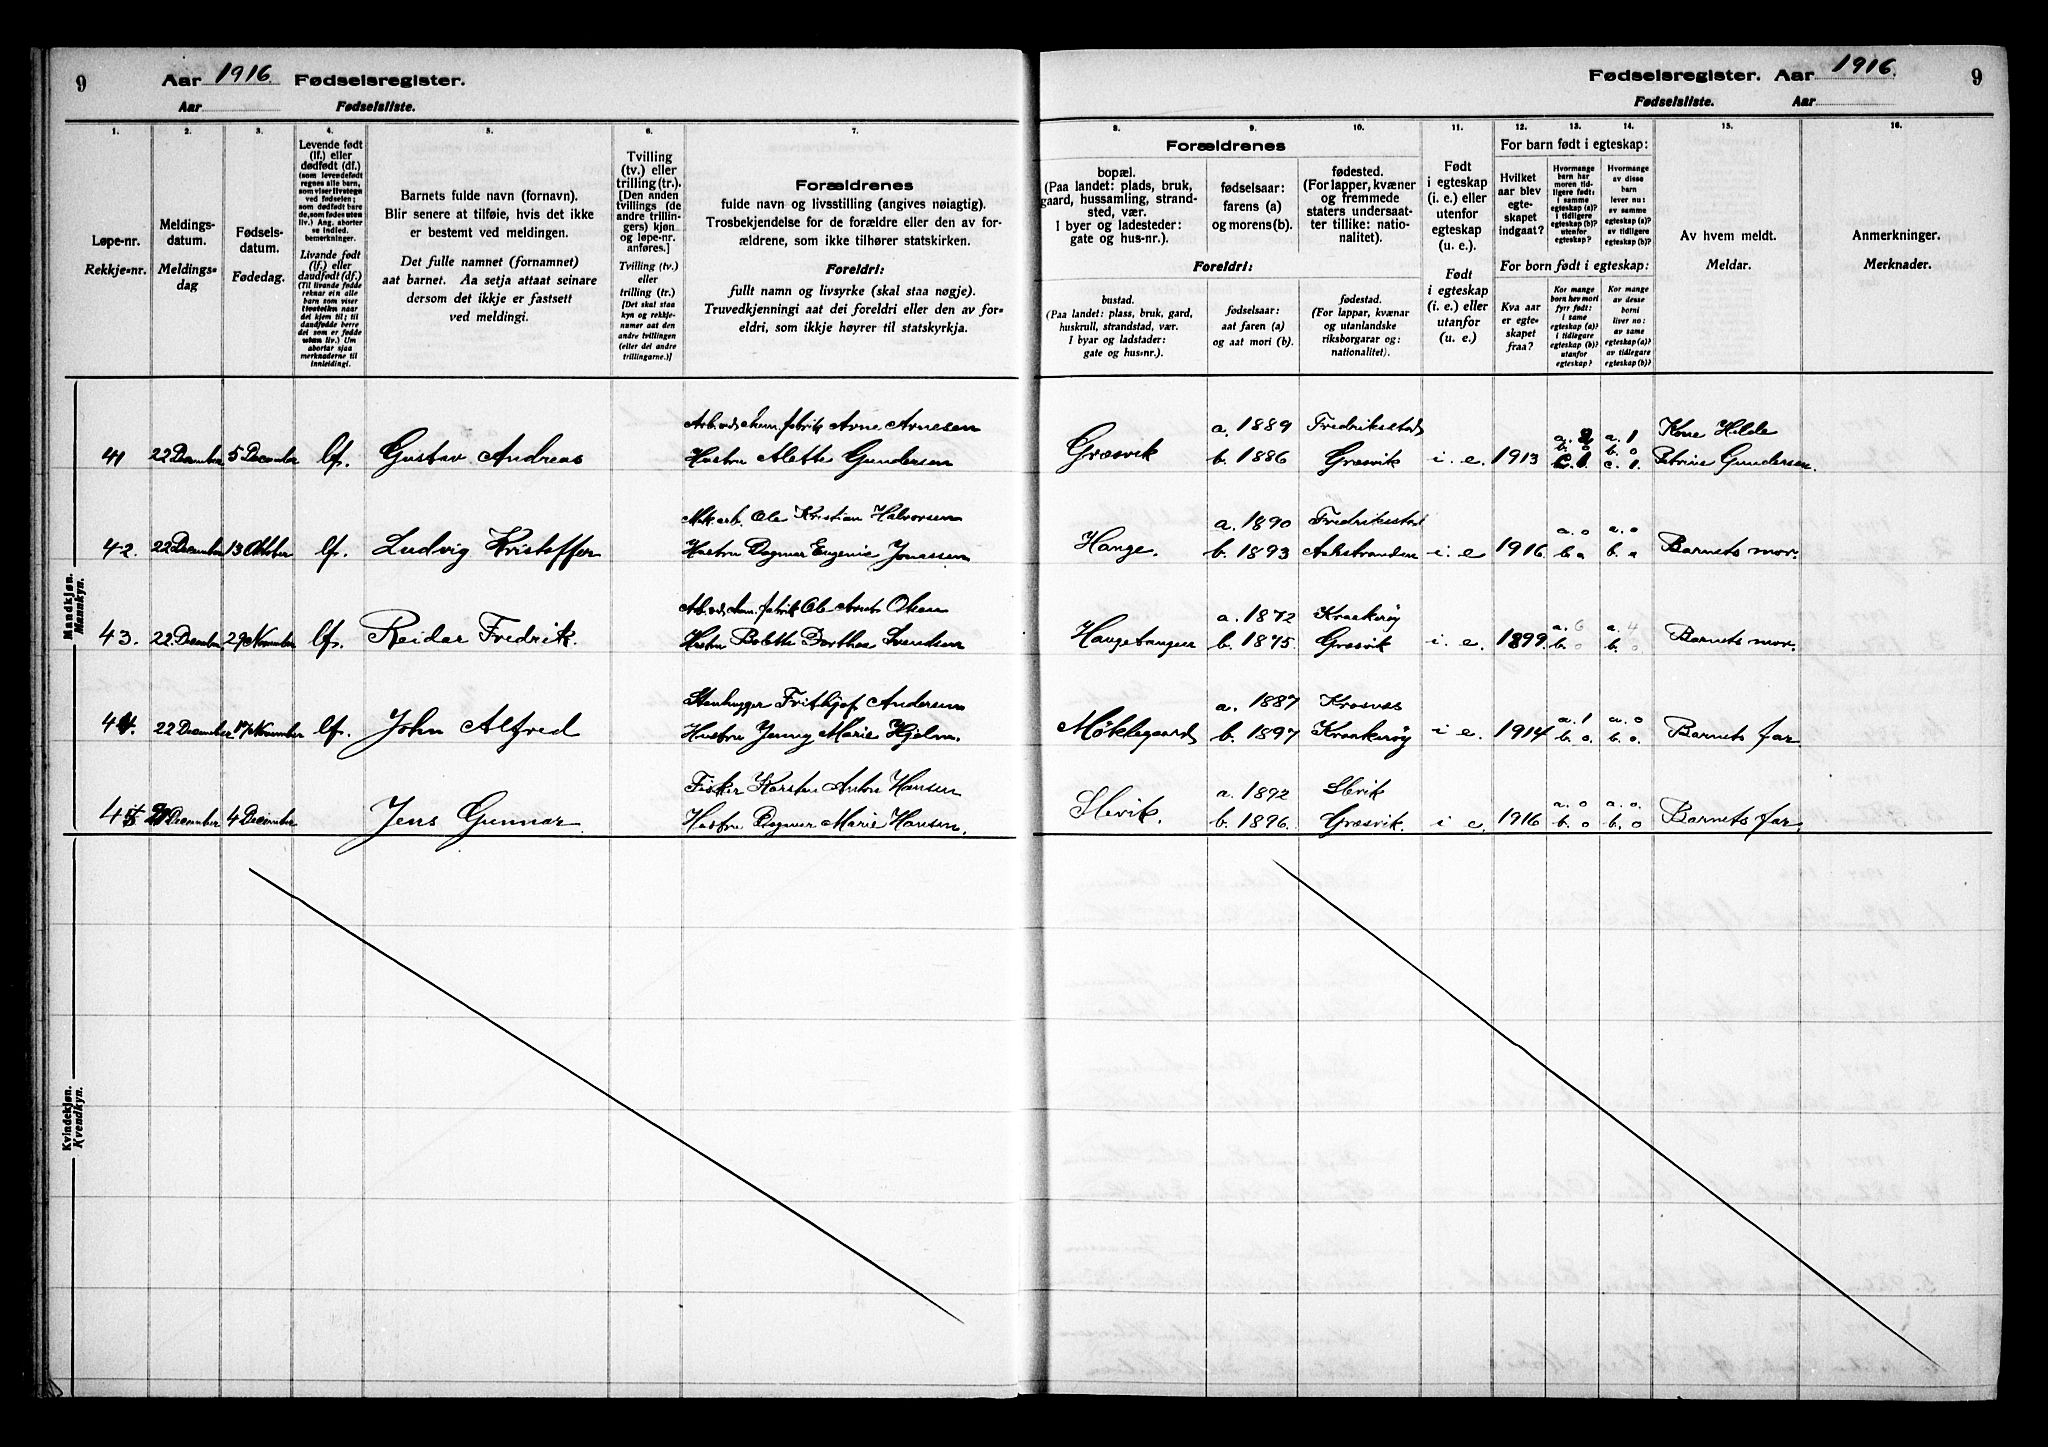 9
Aar 1916. Fødselsregister.
Aar Fødselsliste.
Fødselsregister. Aar 1916.
9
Fødselsliste. Aar
1.
Løpe-nr.
Rekkje-nr.
2.
Meldings-
datum.
Meldings-
dag
3.
Fødsels-
datum.
Fødedag.
4.
Levende født
(lf.) eller
dødfødt (df.)
(som levendefødt
regnes alle barn,
som viser livstegn
ved fødselen;
som dødfødt bare
de, som fødes uten
liv.) Ang. aborter
se indled.
bemerkninger.
Livande født
(lf.) eller
daudfødt (df.)
(Til livande fødde
reknar ein alle
barn som viser
livsteikn naar
dei kjem til; til
daudfødde berre
dei som er fødde
utan liv.) Um
abortar sjaa
merknaderne til
innleidingi.
5.
Barnets fulde navn (fornavn).
Blir senere at tilføie, hvis det ikke
er bestemt ved meldingen.
Det fulle namnet (fornamnet)
aat barnet. Aa setja attaat seinare
dersom det ikkje er fastsett
ved meldingi.
6.
Tvilling
(tv.) eller
trilling (tr.).
[Den anden
tvillings (de
andre trillin-
gers) kjøn
og løpe-nr.
anføres.]
Tvilling (tv.)
eller
trilling (tr.)
[Det skal staa
kyn og rekkje-
numer aat den
andre tvillingen
(eller dei andre
trillingarne.)]
7.
Forældrenes
fulde navn og livsstilling (angives nøiagtig).
Trosbekjendelse for de forældre eller den av for-
ældrene, som ikke tilhører statskirken.
Foreldri:
fullt namn og livsyrke (skal staa nøgje).
Truvedkjenningi aat dei foreldri eller den av for-
eldri, som ikkje høyrer til statskyrkja.
Forældrenes
8.
bopæl.
(Paa landet: plads, bruk,
gaard, hussamling, strand-
sted, vær.
I byer og ladesteder:
gate og hus-nr.).
9.
fødselsaar:
farens (a)
og morens (b).
10.
fødested.
(For lapper, kvæner
og fremmede
staters undersaat-
ter tillike: natio-
nalitet).
Foreldri:
bustad.
(Paa landet: plass, bruk, gard,
huskrull, strandstad, vær.
I byar og ladstader:
gate og hus-nr.).
fødselsaar:
aat faren (a)
og aat mori (b).
fødestad.
(For lappar, kvænar
og utanlandske
riksborgarar og:
nationalitet).
11.
Født
i egteskap
(i. e.) eller
utenfor
egteskap
(u. e.)
Født
i egteskap
(i. e.) eller
utanfor
egteskap
(u. e.)
For barn født i egteskap:
12.
Hvilket
aar blev
egte-
skapet
indgaat?
13.
Hvormange
barn har
moren tid-
ligere født:
i samme
egteskap (a)?
i tidligere
egteskap (b)?
utenfor
egteskap?
14.
Hvormange
av disse
barn
lever nu:
av samme
egteskap (a)?
av tidligere
egteskap (b)?
For born født i egteskap:
Kva aar
er egte-
skapet
fraa?
Kor mange
born hev mori
fyrr født:
i same
egteskap (a)?
i tidlegare
egteskap (b)?
utanfor
egteskap?
Kor mange
av desse
borni
liver no:
av same
egteskap (a)?
av tidlegare
egteskap (b)?
15.
Av hvem meldt.
Meldar.
16.
Anmerkninger.
Merknader.
Mandkjøn.
Mannkyn.
41 22 December 5 December lf. Gustav Andreas
Arb. ved kem. fabrik Arne Arnesen
Hustru Alette Gundersen
Græsvik a. 1889 Fredriksstad
b. 1886 Græsvik i. e. 1913
a. 1
b. 0
c. 1.
Kone Hilde
Petrine Gundersen.
42. 22 December 13 Oktober lf. Ludvig Kristoffer
Mek. arb. Ole Kristian Halvorsen
Hustru Dagmar Eugenie Jonassen
Hauge. a. 1890 Fredriksstad
b. 1893 i. e. 1916
a. 0
b. 0
a. 0
b. 0
Barnets mor.
43. 22 December 29 November lf. Reidar Fredrik.
Arb. ved kem. fabrik Ole Olsen
Hustru Bolette Dorthea Svendsen
a. 1872 Kraakerøy
b. 1875. Græsvik i. e. 1899.
a. 6
b. 0
a. 4
b. 0
Barnets mor.
44. 22 December 17 November lf. John Alfred
Stenhugger Frithjof Andersen
Hustru Jenny Marie Hjelm.
Møklegaard a. 1887
b. 1897 Kraakerøy i e. 1914
a. 1
b. 0.
a. 0
b. 0.
Barnets far.
45 December 4 December Jens Gunnar.
Fisker Karsten Anton Hansen
Hustru Dagmar Marie Hansen.
Slevik. a. 1892 Slevik
b. 1896. Græsvik. i e. 1916
a. 0
b. 0
a. 0.
b. 0
Barnets far.
Kvindekjøn.
Kvendkyn.